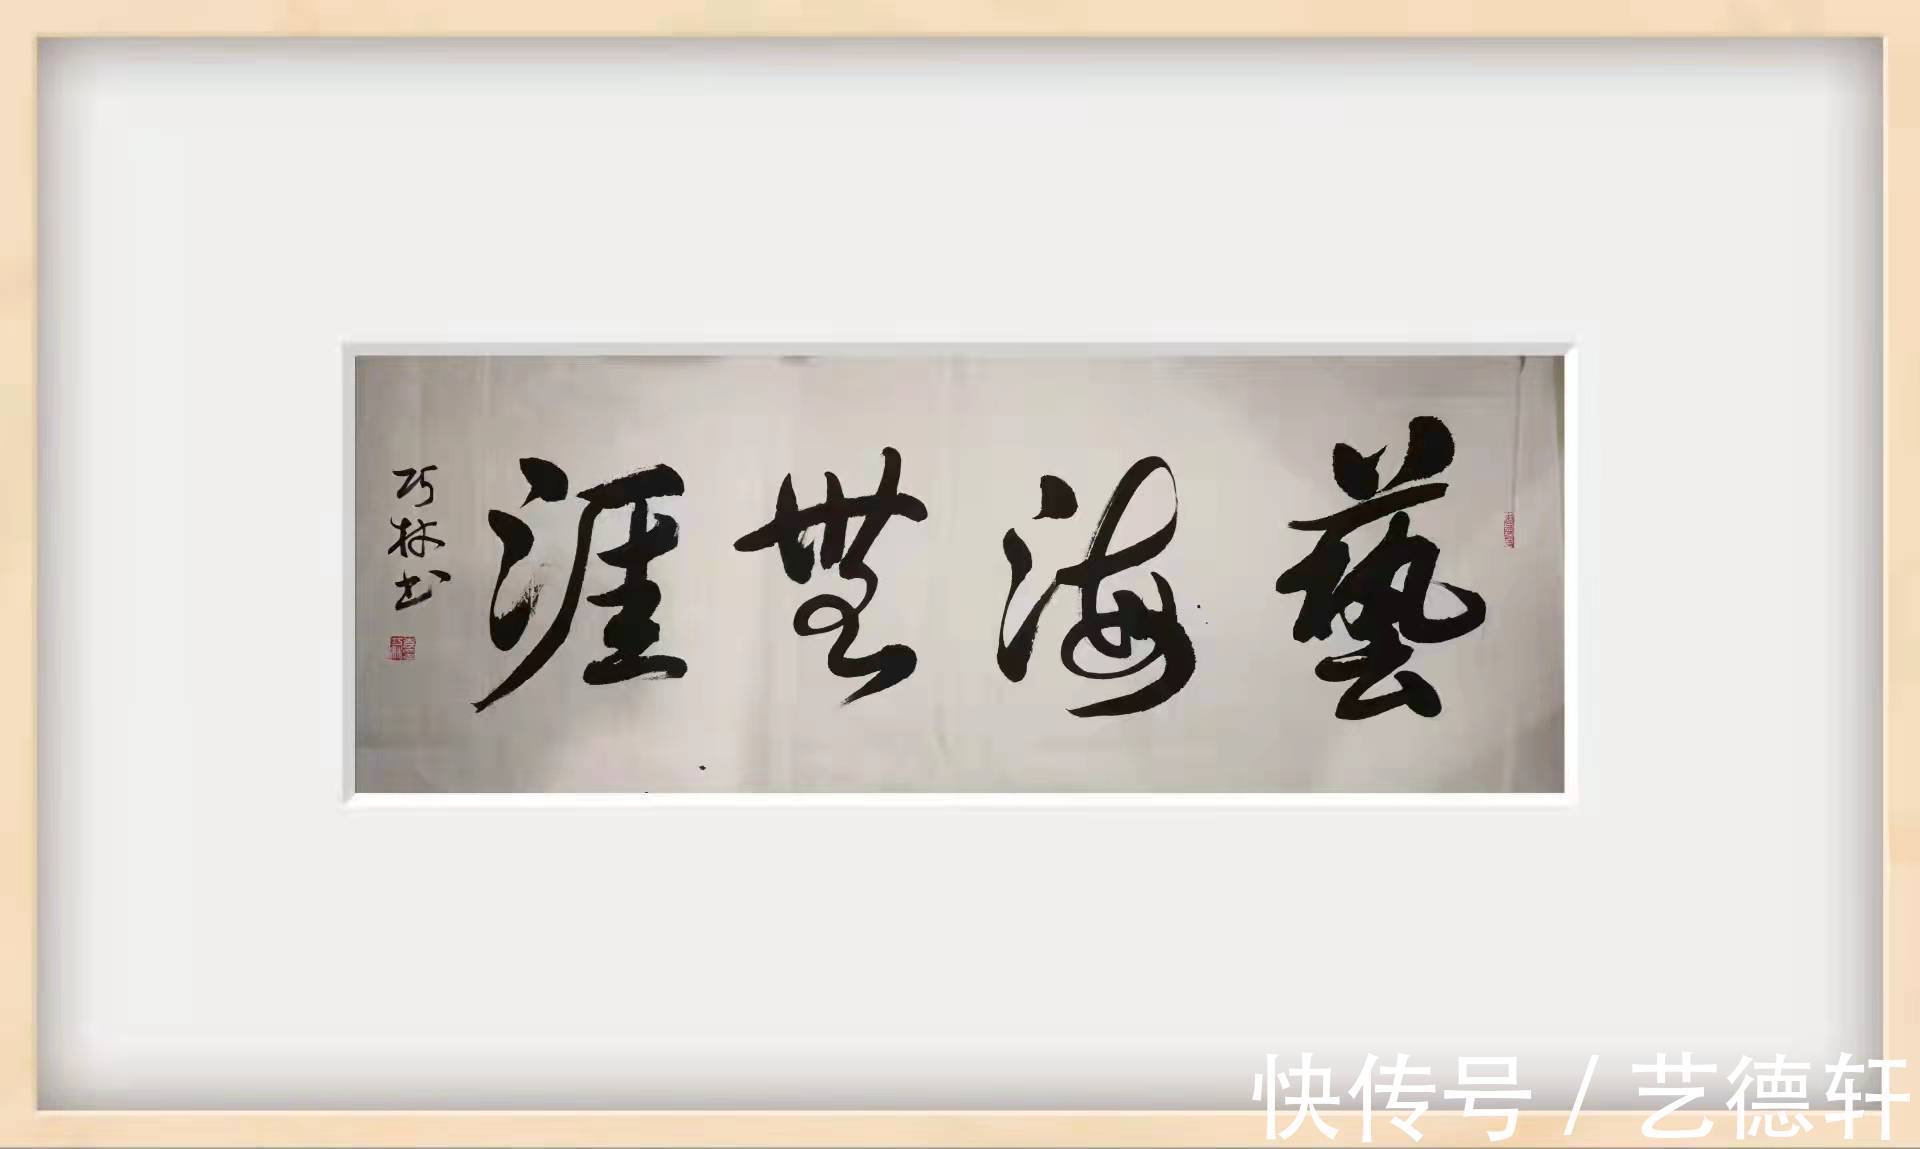 藝海無涯
巧林书
快传号 / 艺德轩